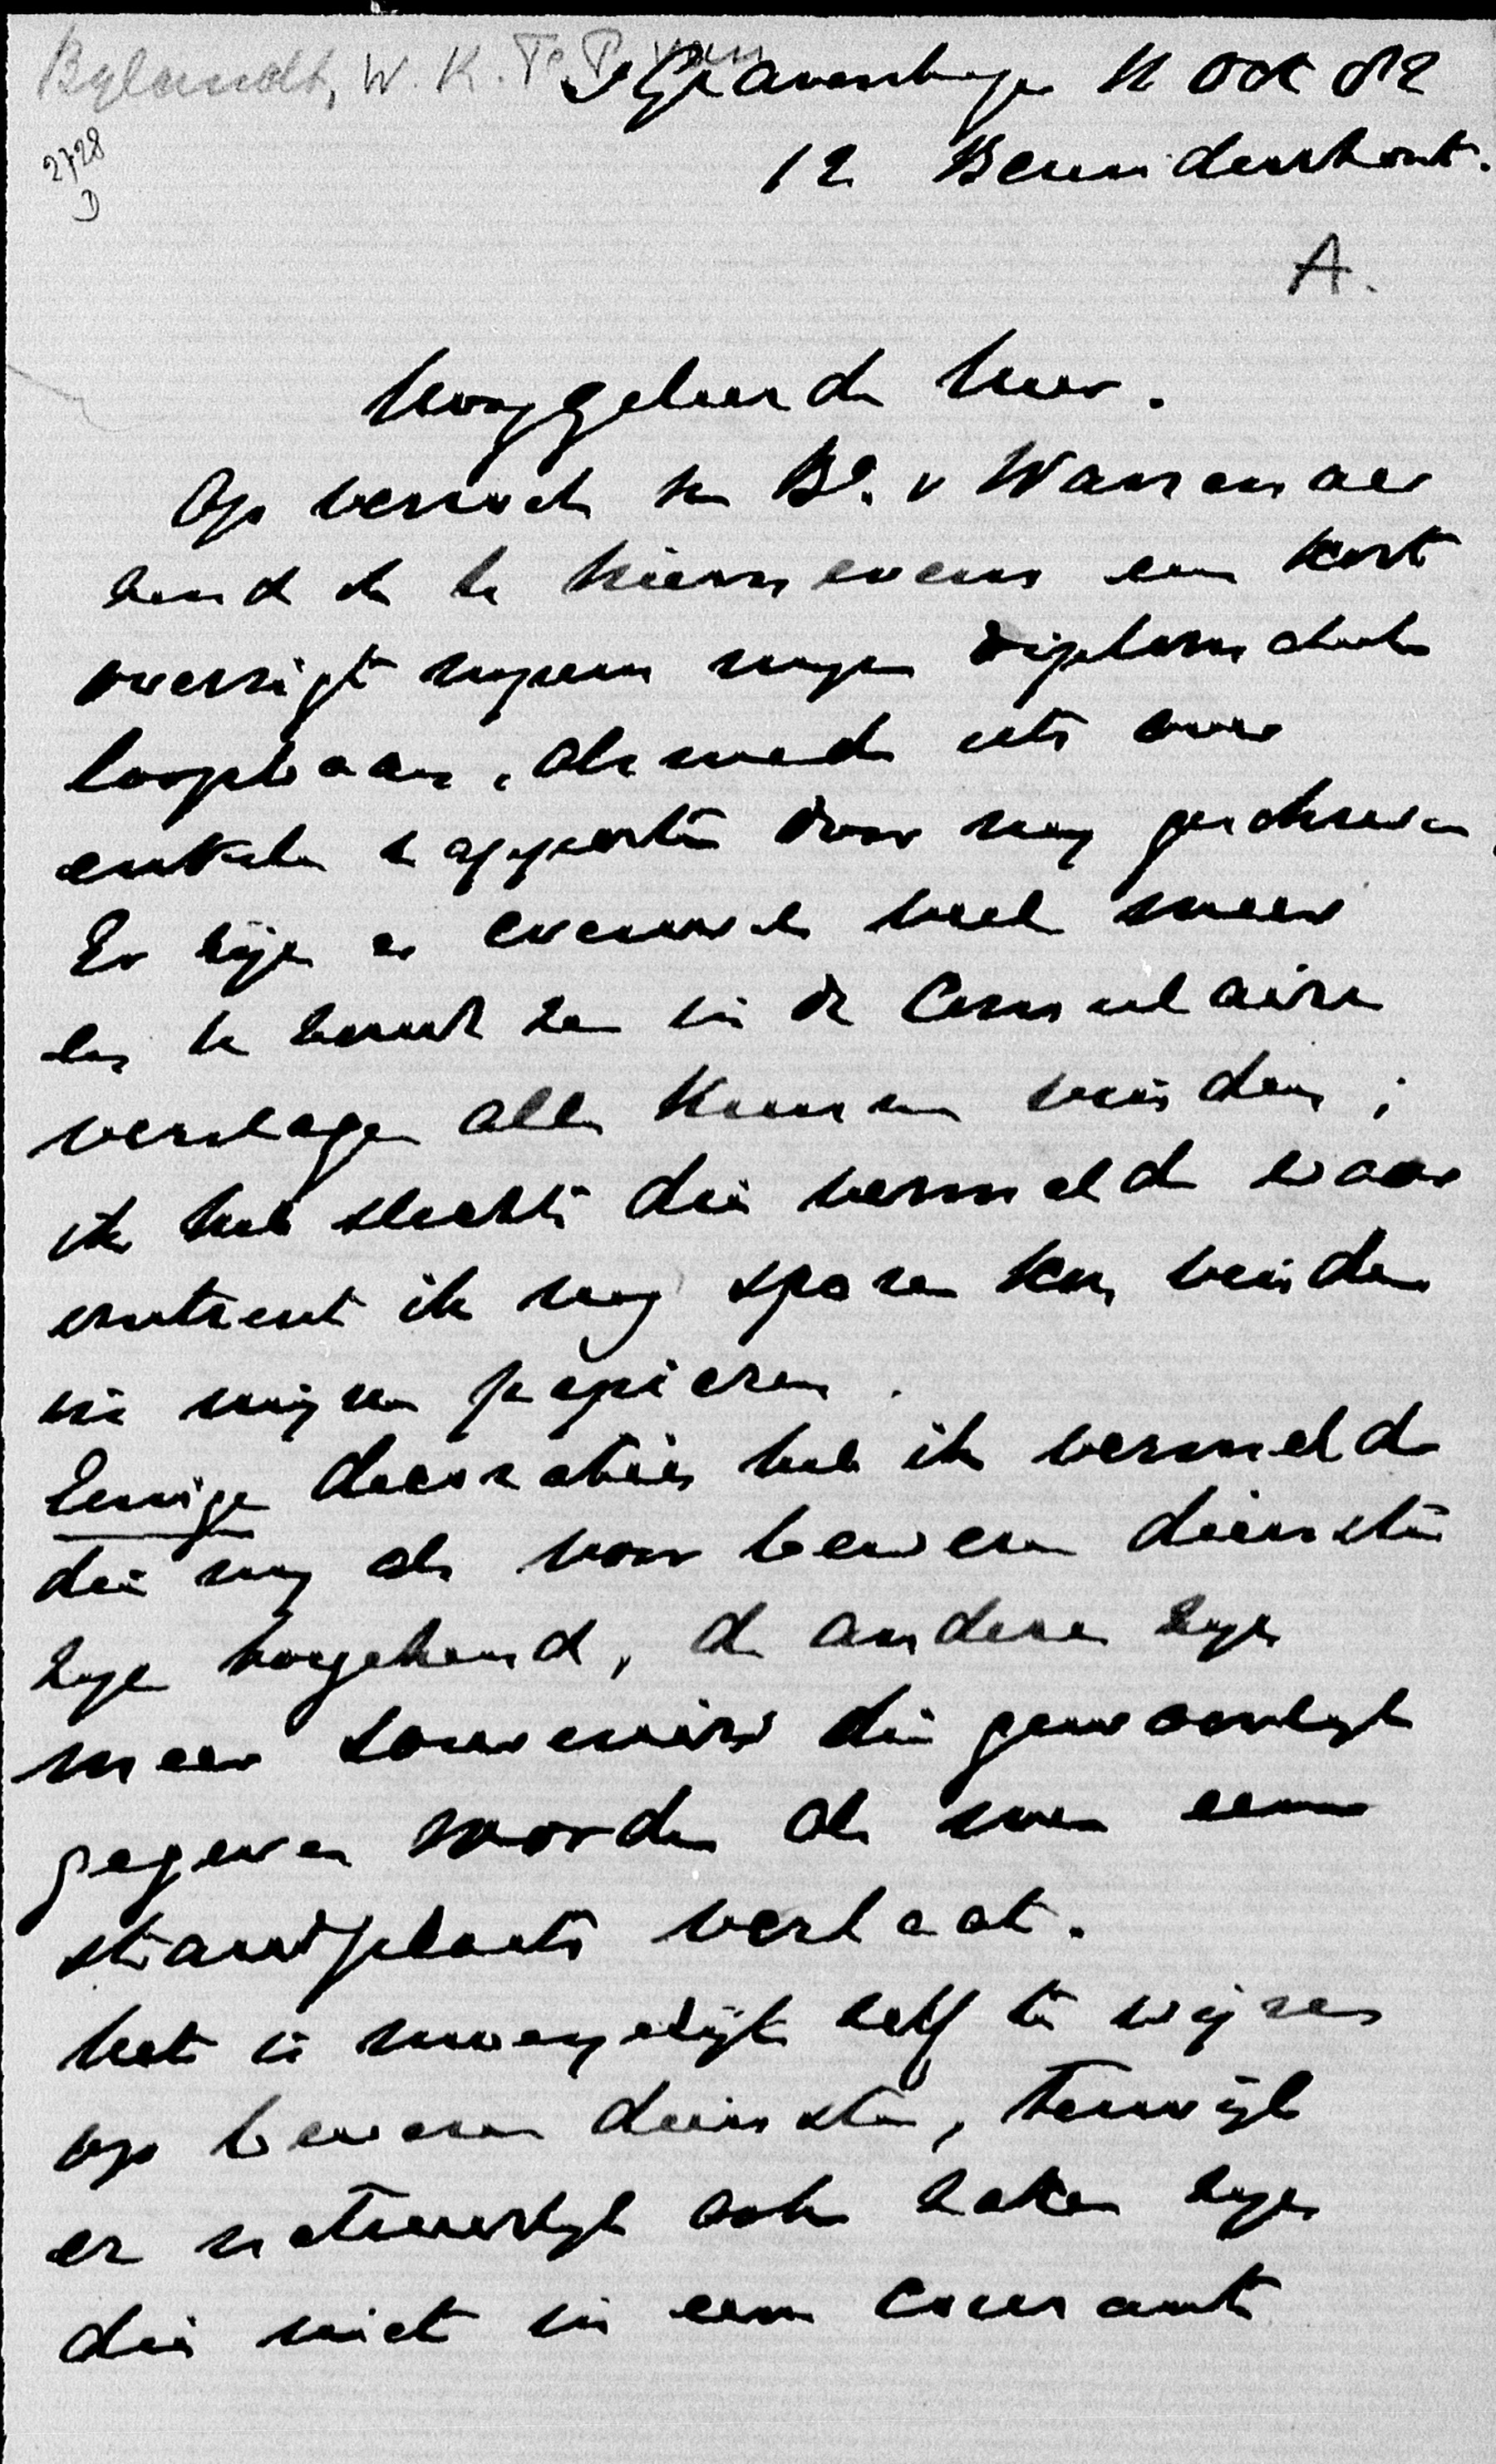 Bylandt, W. K. F. P. van
's Gravenhage 12 Oct 82
2728
D
12 Bezuidenhout.
A.
Hooggeleerde Heer.
Op verzoek van Bn. v Wassenaer
zend ik U hiernevens een kort
overzigt mijner diplomatieke
loopbaan, alsmede iets over
enkele rapporten door mij geschreven
Er zijn er evenwel veel meer
en U zoudt ze in de Consulaire
verslagen alle kunnen vinden;
ik heb slechts die vermeld waar
omtrent ik nog sporen kon vinden
in mijne papieren.
Eenige decoraties heb ik vermeld
die mij als voor bewezen diensten
zijn toegekend, de andere zijn
meer souvenirs die gewoonlijk
gegeven worden als men eene
standplaats verlaat.
Het is moeyelijk zelf te wijzen
op bewezen diensten, terwijl
er natuurlijk ook zaken zijn
die niet in een courant